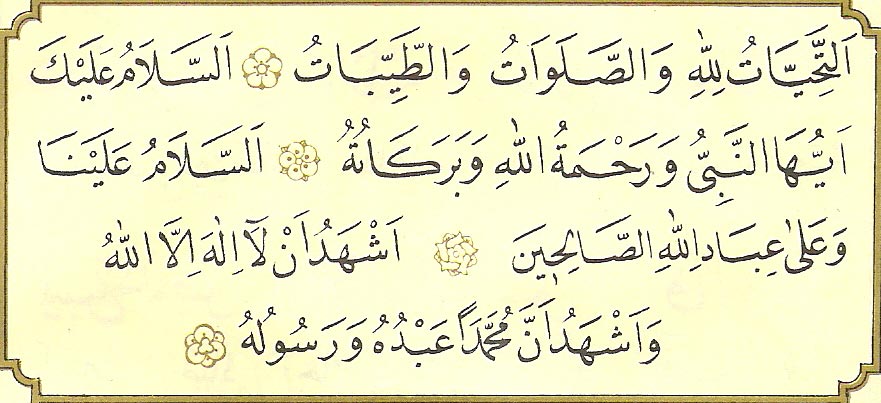 اَلتَّحِيَّاتُ لِلّٰهِ وَالصَّلَوَاتُ وَالطَّيِّبَاتُ اَلسَّلَامُ عَلَيْكَ
اَيُّهَا النَّبِىُّ وَرَحْمَةُ اللّٰهِ وَبَرَكَاتُهُ اَلسَّلَامُ عَلَيْنَا
وَعَلٰى عِبَادِ اللّٰهِ الصَّالِحِينَ اَشْهَدُ اَنْ لَٓا اِلٰهَ اِلَّا اللّٰهُ
وَاَشْهَدُ اَنَّ مُحَمَّدًا عَبْدُهُ وَرَسُولُهُ